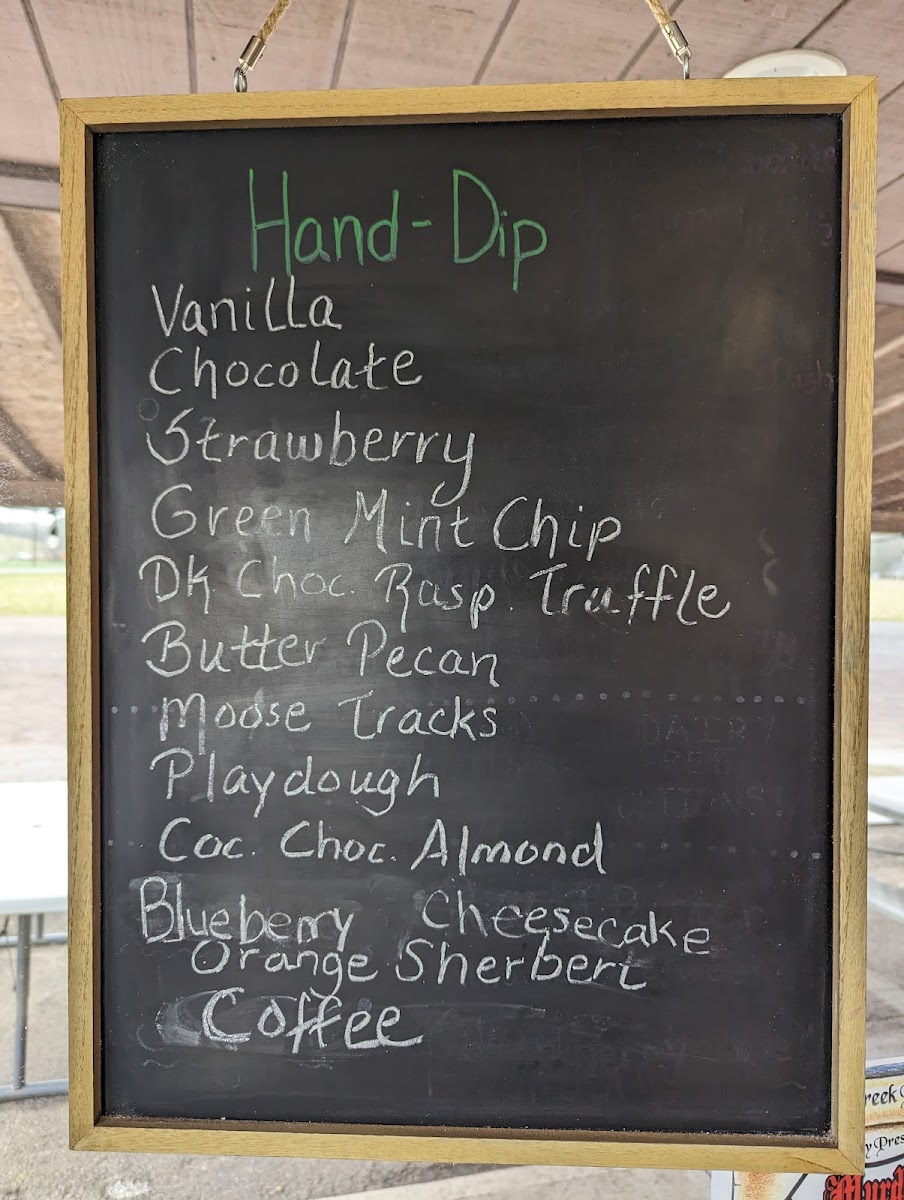 Hand-Dip
Vanilla
Chocolate
Strawberry
Green Mint Chip
Dk. Choc. Rasp. Truffle
Butter Pecan
Moose Tracks
Playdough
Coc. Choc. Almond
Blueberry Cheesecake
Orange Sherbert
Coffee
DAIRY
reek
y Pres
Murd